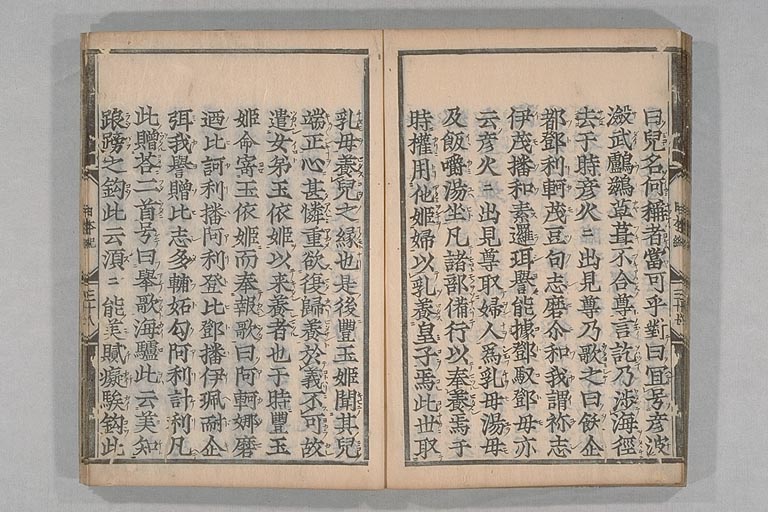 曰兒名何稱者當可乎對曰宜号彦波
瀲武鸕鷀草葺不合尊言訖乃渉海徑
去于時彦火火出見尊乃歌之曰飫企
都鄧利軻茂豆句志磨尓和我謂祢志
伊茂播和素邏珥譽能據鄧馭鄧母亦
云彦火火出見尊取婦人爲乳母湯母
及飯嚼湯坐凡諸部備行以奉養焉于
時權用他姬婦以乳養皇子焉此世取
乳母養兒之縁也是後豐玉姬聞其兒
端正心甚憐重欲復歸養於義不可故
遣女弟玉依姬以来養者也于時豐玉
姬命寄玉依姬而奉報歌曰阿軻娜磨
廼比訶利播阿利登比鄧播伊珮耐企
弭我譽贈比志多輔妬勾阿利計利凡
此贈荅二首号曰舉歌海驢此云美知
踉蹡之鈎此云湏湏能美膩癡騃鈎此